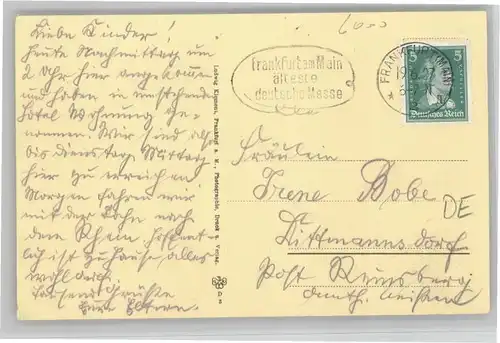 Liebe Kinder!
Heute Nachmittag um
2 Uhr hier angekommen
und haben in umstehendem
Hotel Wohnung ge-
nommen. Wir sind also
bis Dienstag Mittag
hier zu erreichen
Morgen fahren wir
mit der Bahn nach
dem Rhein. Hoffent-
lich ist zu Hause alles
wohl
Tausend Grüße
Eure Eltern.
Ludwig Klement, Frankfurt a. M., Photographie, Druck u. Verlag.
Frankfurt am Main
älteste
deutsche Messe
FRANKFURT (MAIN)
19.6.27
5
5
Deutsches Reich
Fräulein
Irene Bobe
Dittmannsdorf
Post Reinsberg
DE